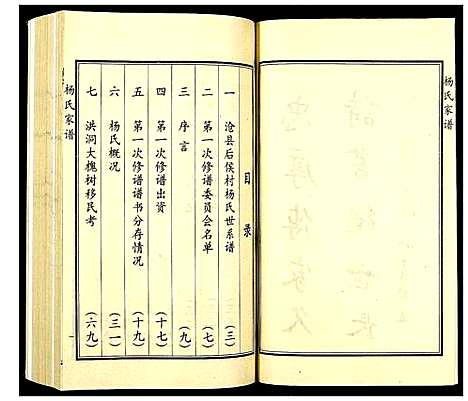 杨氏家谱
目录
一 沧县后侯村杨氏世系谱 （三）
二 第一次修谱委员会名单 （七）
三 序言 （九）
四 第一次修谱出资 （十七）
五 第一次修谱谱书分存情况 （十九）
六 杨氏概况 （三一）
七 洪洞大槐树移民考 （六九）
杨氏家谱
一